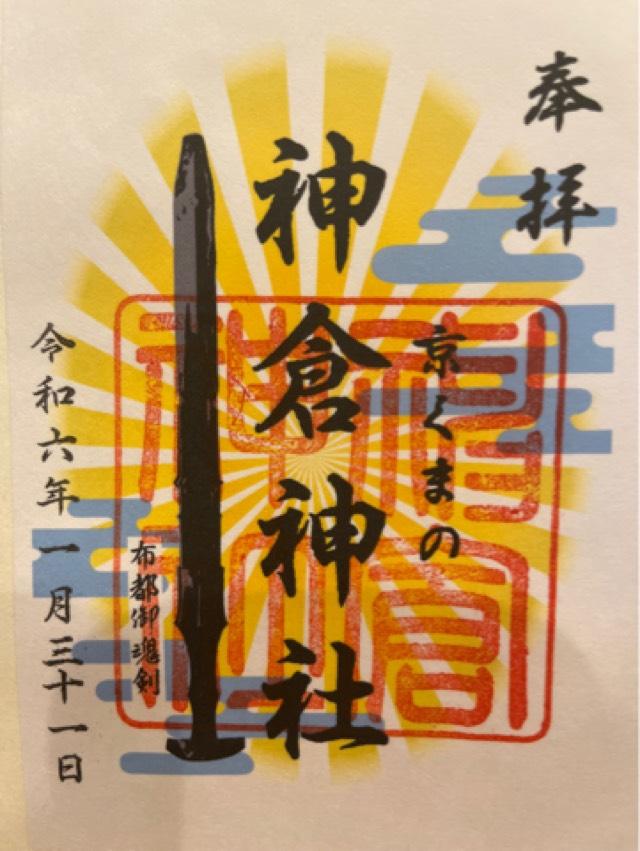 奉拝
京くまの
神倉神社
布都御魂剣
令和六年一月三十一日